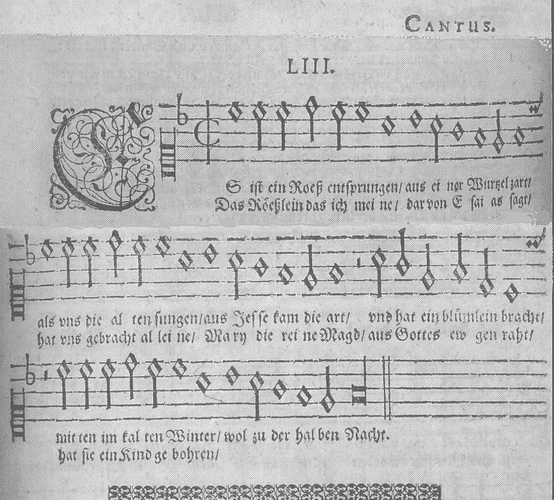 CANTUS.
LIII.
ES ist ein Roeß entsprungen/ aus ei ner Wurtzel zart/
Das Röeßlein das ich mei ne/ dar von E sai as sagt/
als vns die al ten sungen/ aus Jes se kam die art/ vnd hat ein blümlein bracht/
hat vns gebracht al lei ne/ Ma ry die rei ne Magd/ aus Gottes ew gen raht/
mit ten im kal ten Winter/ wol zu der hal ben Nacht.
hat sie ein Kind ge bohren/